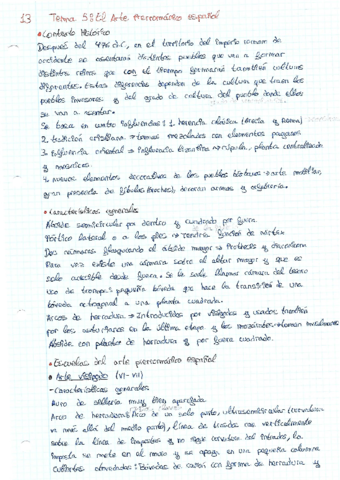 13 Tema 5: El Arte Prerrománico Español
• Contexto Histórico
Después del 476 d.C, en el territorio del Imperio romano de
occidente se asentarán distintos pueblos que van a formar
distintos reinos que con el tiempo formarán también culturas
diferentes. Estas diferencias dependen de la cultura que traen los
pueblos invasores y del grado de cultura del pueblo donde ellos
se van a asentar.
Se basa en cuatro influencias: 1. herencia clásica (grecia y Roma)
2. tradición cristiana → temas mezclados con elementos paganos
3. Influencia oriental → influencia bizantina → cúpula, planta centralizada
y mosaicos.
4. nuevos elementos decorativos de los pueblos bárbaros → arte mobiliar,
gran presencia de fíbulas (broches), decoran armas y orfebrería.
• Características generales
Ábside semicircular por dentro y cuadrado por fuera
Pórtico lateral o a los pies →
Dos cámaras flanqueando el ábside mayor → Prothesis y diaconicon
Para una existe una cámara sobre el altar mayor y que es
solo accesible desde fuera. Se la suele llamar cámara del tesoro
Uso de trompas: pequeña bóveda que hace la transición de una
bóveda octogonal a una planta cuadrada.
Arcos de herradura → Introducidos por visigodos y usados también
por los asturianos en la última etapa y los mozárabes → toman musulmanes
Ábside con planta de herradura y por fuera cuadrado.
• Escuelas del arte prerrománico español
• Arte Visigodo (VI-VII)
- Características generales
Muro de sillería muy bien aparejada
Arco de herradura: Arco de un solo punto, ultrasemicircular (curvatura
va más allá del medio punto), línea de trasdós cae verticalmente
sobre la línea de impostas y no sigue curvatura del intradós, la
imposta se mete en el muro y se apoya en una pequeña columna
Cubiertas abovedadas: Bóvedas de cañón con forma de herradura y